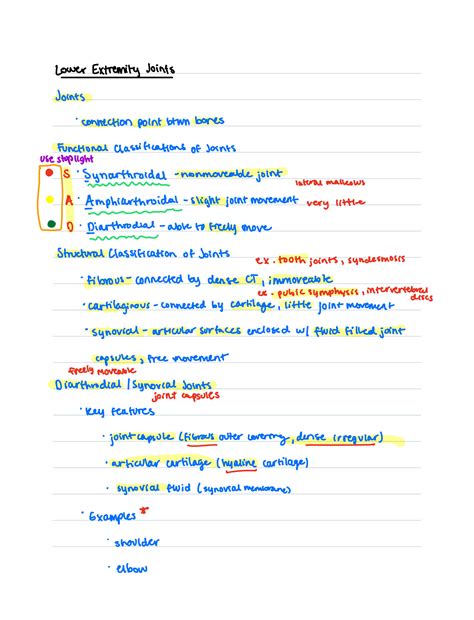 Lower Extremity Joints
Joints
· connection point btwn bones
Functional Classifications of Joints
use stoplight
S · Synarthroidal - nonmoveable joint
lateral malleolus
A · Amphiarthroidal - slight joint movement very little
D · Diarthrodial - able to freely move
Structural Classification of Joints
ex. tooth joints, syndesmosis
· fibrous - connected by dense CT, immoveable
ex. pubic symphysis, intervertebral discs
· cartilaginous - connected by cartilage, little joint movement
· synovial - articular surfaces enclosed w/ fluid filled joint
capsules, free movement
freely moveable
Diarthrodial / Synovial Joints
joint capsules
· Key features
· joint capsule (fibrous outer covering, dense irregular)
· articular cartilage (hyaline cartilage)
· synovial fluid (synovial membrane)
· Examples *
· shoulder
· elbow